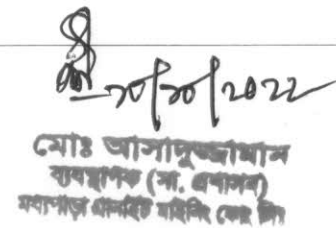 ১০/১০/২০২২
মোঃ আসাদুজ্জামান
ব্যবস্থাপক (সা. প্রশাসন)
মধ্যপাড়া গ্রানাইট মাইনিং কোং লিঃ